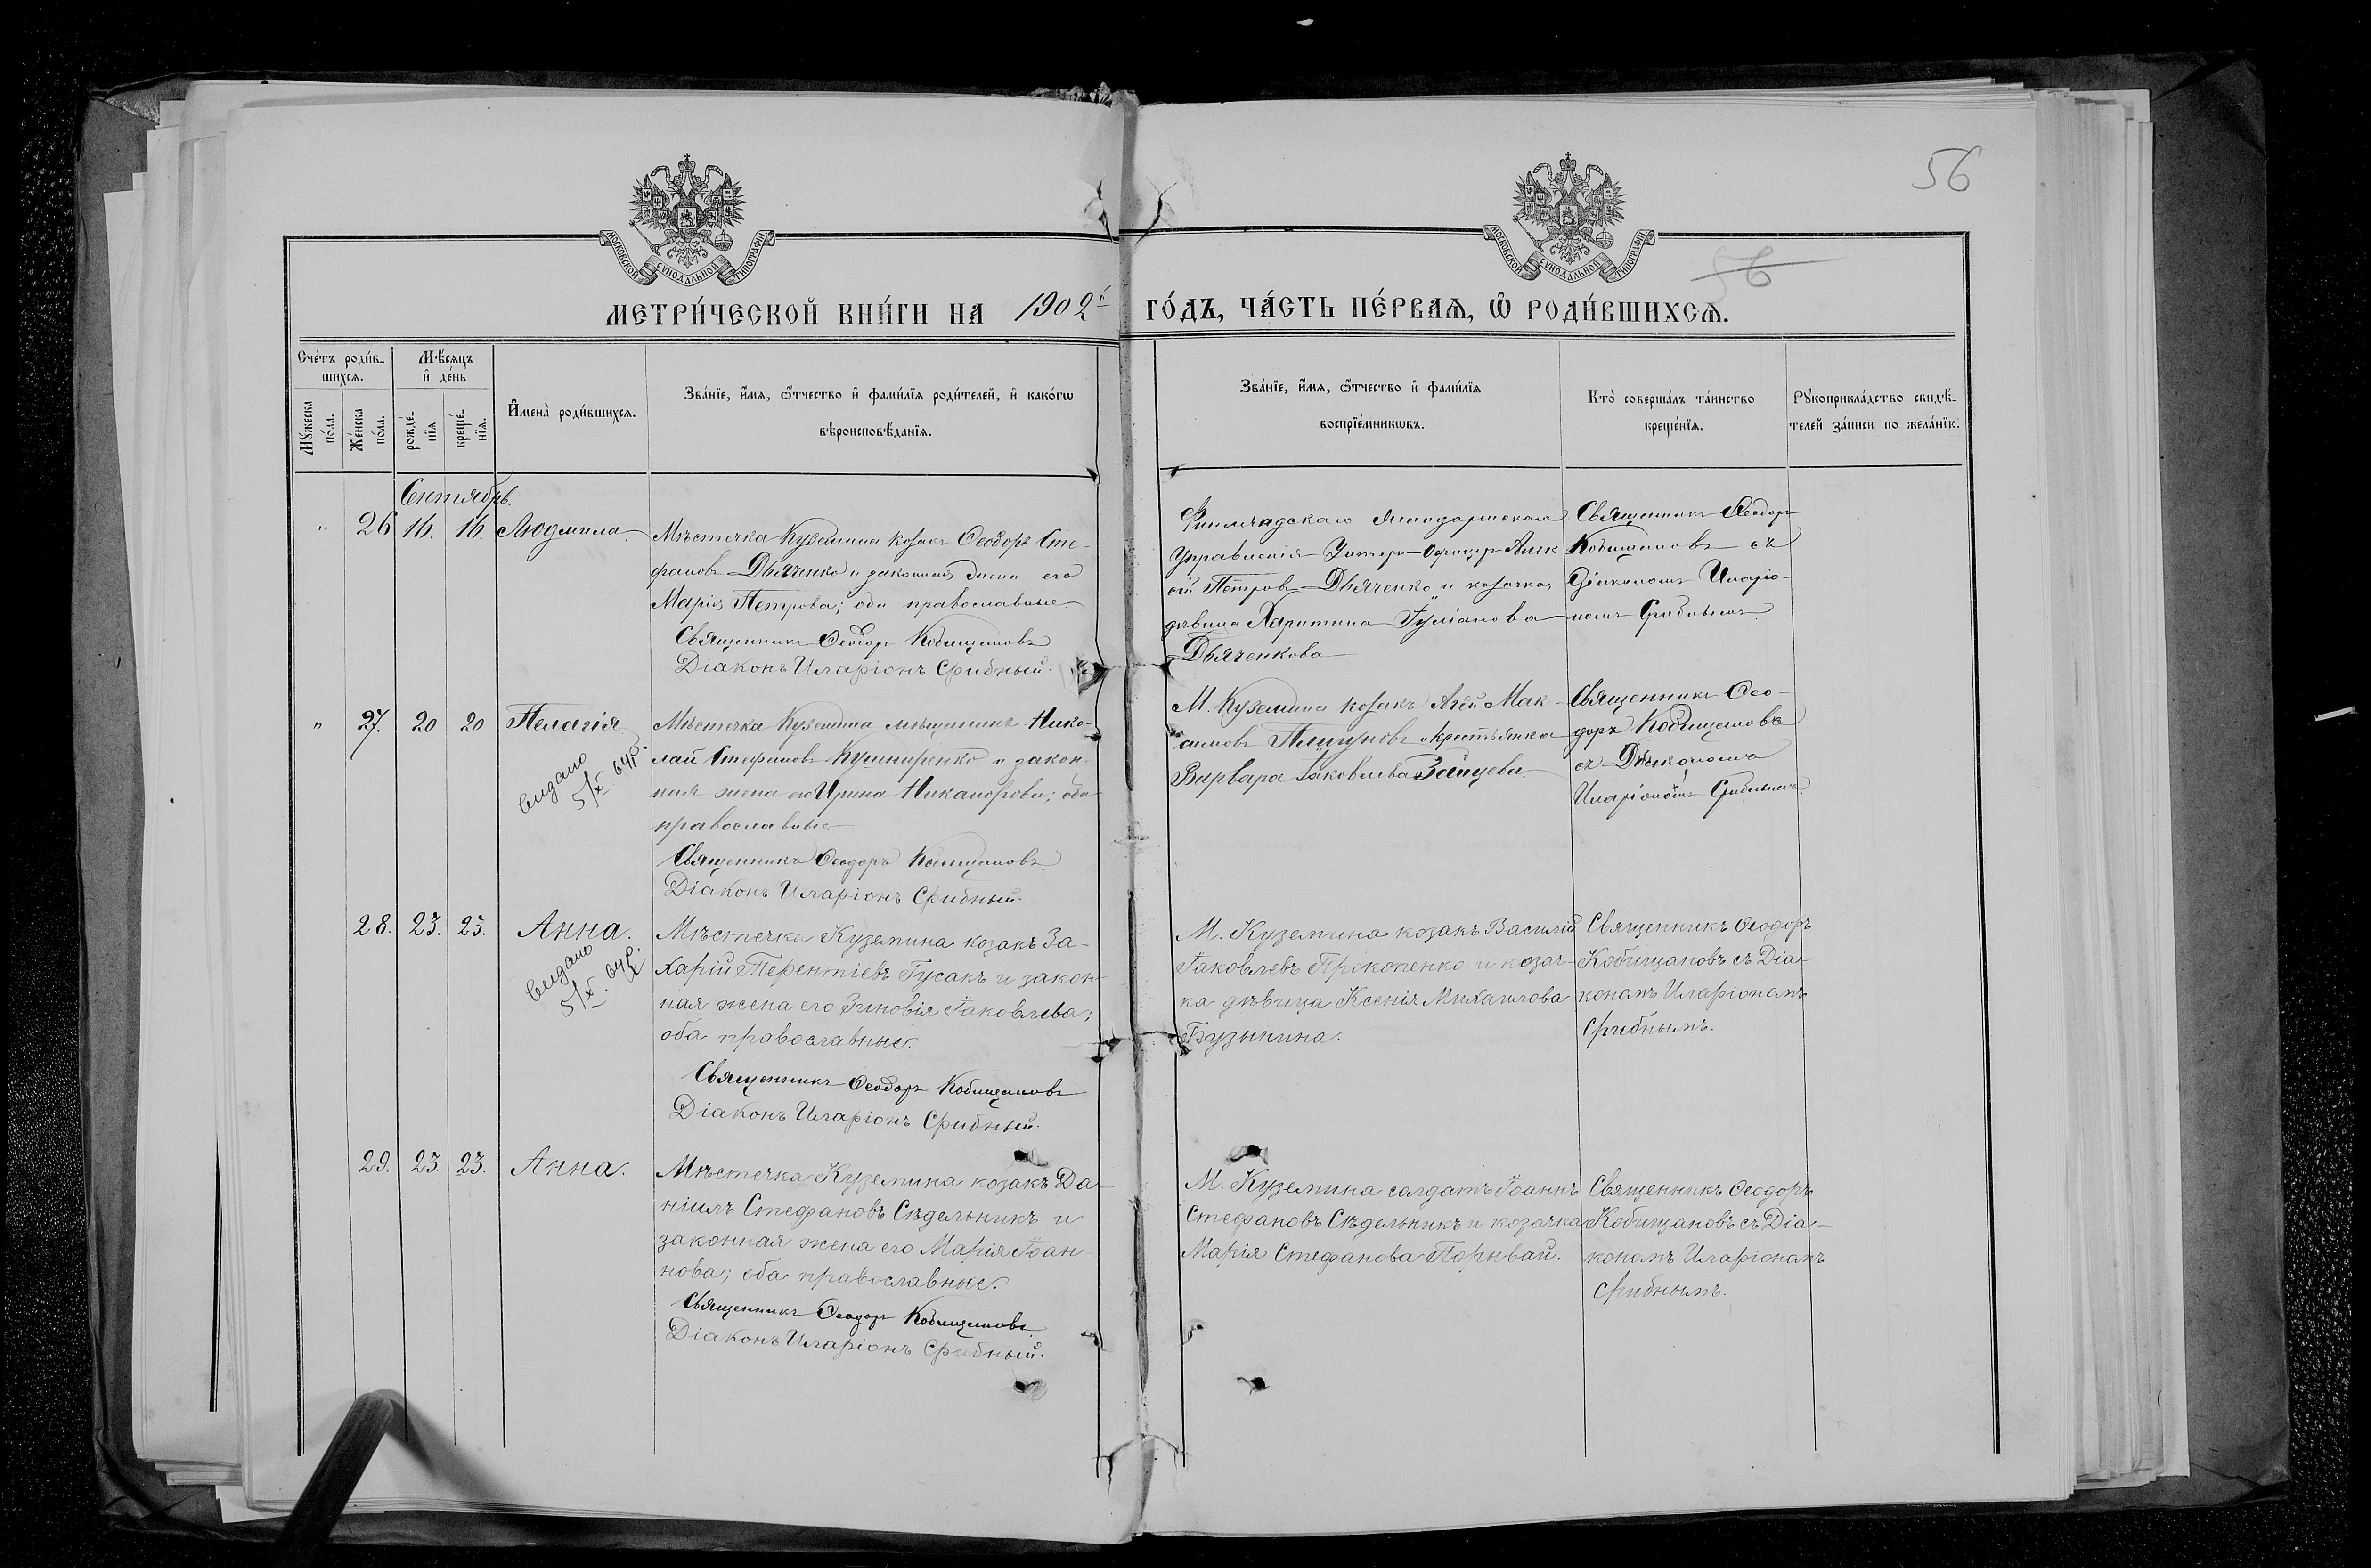 56
56
МОСКОВСКОЙ СѴНОДАЛЬНОЙ ТИПОГРАФІИ
МОСКОВСКОЙ СѴНОДАЛЬНОЙ ТИПОГРАФІИ
МЕТРИ́ЧЕСКОЙ КНИ́ГИ НА 1902й ГО́ДЪ, ЧА́СТЬ ПЕ́РВАѦ, Ѡ҆ РОДИ́ВШИХСѦ.
Сче́тъ роди́в-
шихсѧ.
Мѣ́сѧцъ
и҆ де́нь
Мꙋ́жеска
по́ла.
Же́нска
по́ла.
рожде́-
нїѧ
креще́-
нїѧ.
И҆мена̀ роди́вшихсѧ.
Зва́нїе, и҆́мѧ, ѻ҆́тчество и҆ фами́лїѧ роди́телей, и҆ како́гѡ
вѣроисповѣ́данїѧ.
Зва́нїе, и҆́мѧ, ѻ҆́тчество и҆ фами́лїѧ
воспрїе́мникѡвъ.
Кто̀ соверша́лъ та́инство
креще́нїѧ.
Рꙋкоприкла́дство свидѣ́-
телей за́писи по жела́нїю.
Сентябрь.
" 26 16. 16. Людмила.
Мѣстечка Куземина козакъ Ѳеодоръ Сте-
фановъ Дьяченко и законная жена его
Марія Петрова; оба православные.
Священникъ Ѳеодоръ Кобищановъ
Діаконъ Иларіонъ Срибный.
Жандармскаго
Управленія Унтер-Офицеръ Алек
ѣй Петровъ Дьяченко и козачка
дѣвица Харитина Іуліанова
Дьяченкова
Священникъ Ѳеодоръ
Кобищановъ съ
Діакономъ Иларіо-
номъ Срибнымъ.
" 27. 20 20 Пелагія.
видано
5/XI 64р.
Мѣстечка Куземина мѣщанинъ Нико-
лай Стефановъ Кушниренко и закон-
ная жена его Ирина Никанорова; оба
православные
Священникъ Ѳеодоръ Кобищановъ
Діаконъ Иларіонъ Срибный.
М. Куземина козакъ Агѣй Мак-
симовъ и крестьянка
Варвара Іаковлева Зайцева.
Священникъ Ѳео-
доръ Кобищановъ
съ Діакономъ
Иларіономъ Срибнымъ.
28. 23. 25. Анна.
видано
5/XI. 64р.
Мѣстечка Куземина козакъ За-
харій Терентіевъ Гусакъ и закон-
ная жена его Зиновія Іаковлева;
оба православные.
Священникъ Ѳеодоръ Кобищановъ
Діаконъ Иларіонъ Срибный.
М. Куземина козакъ Василій
Іаковлевъ Прокопенко и козач-
ка дѣвица Ксенія Михаилова
Бузынина.
Священникъ Ѳеодоръ
Кобищановъ съ Діа-
кономъ Иларіономъ
Срибнымъ.
29. 23. 23. Анна.
Мѣстечка Куземина козакъ Да-
ніилъ Стефановъ Сѣдельникъ и
законная жена его Марія Іоан-
нова; оба православные.
Священникъ Ѳеодоръ Кобищановъ
Діаконъ Иларіонъ Срибный.
М. Куземина солдатъ Іоаннъ
Стефановъ Сѣдельникъ и козачка
Марія Стефанова Порывай.
Священникъ Ѳеодоръ
Кобищановъ съ Діа-
кономъ Иларіономъ
Срибнымъ.